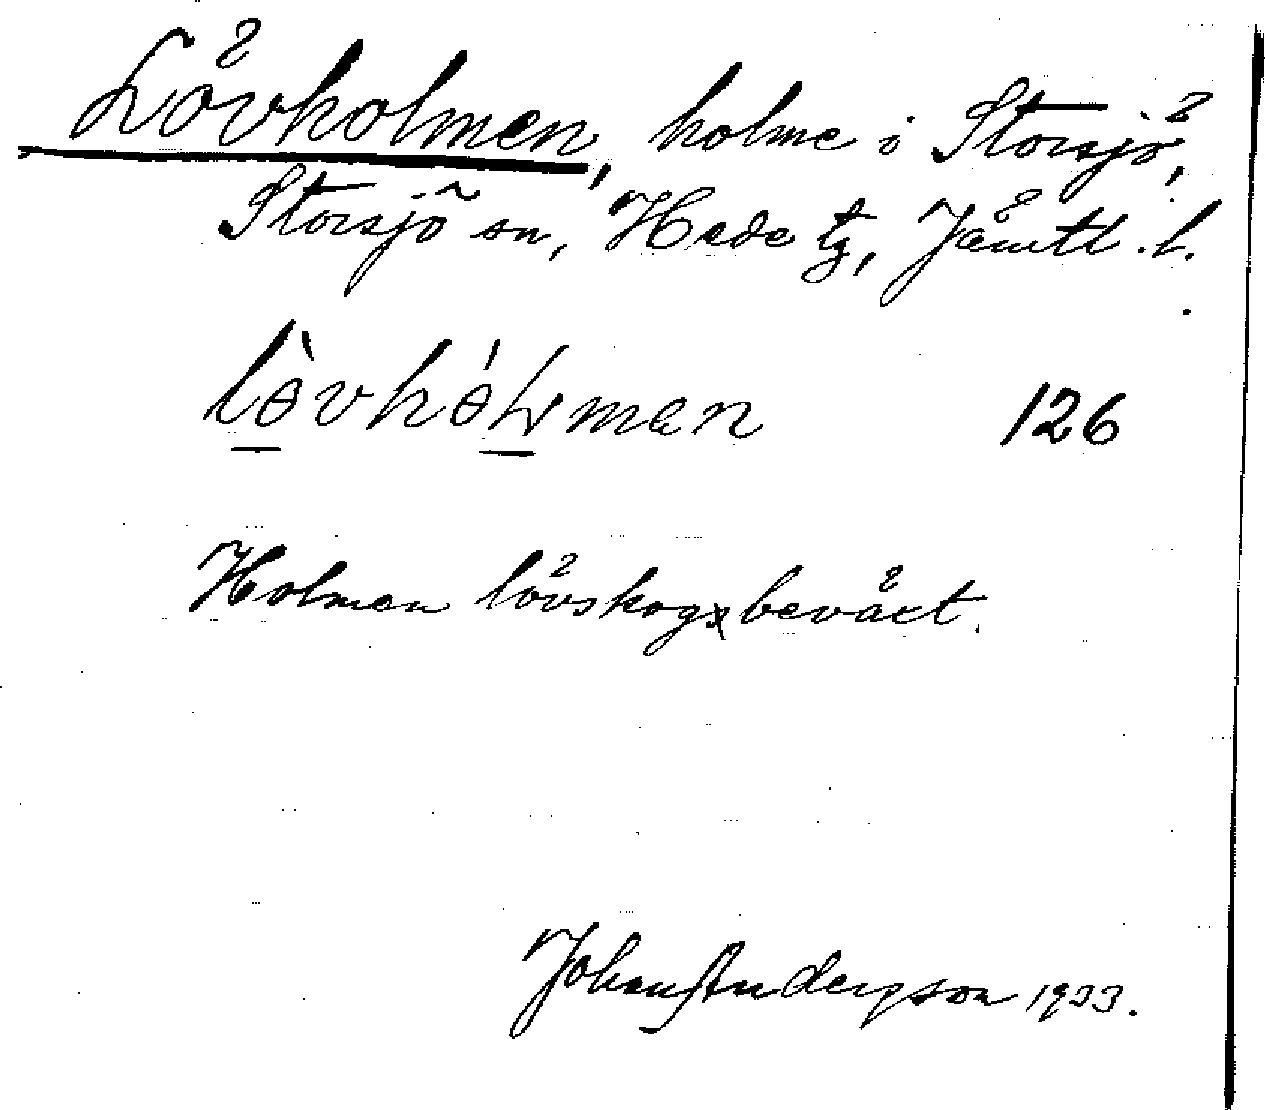 Lövholmen, holme i Storsjö,
Storsjö sn, Hede tg, Jämtl. l.
lɵ̀vhɵ́ɫmen 126
Holmen lövskogsbeväxt.
Johan Anderson 1933.